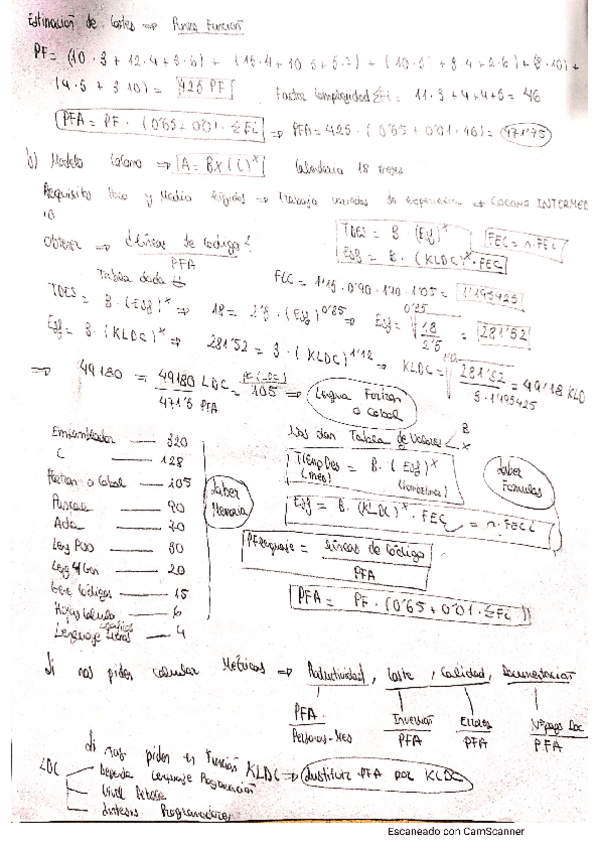 Estimación de Costes => Puntos Función
PF = (10·3 + 12·4 + 3·6) + (15·4 + 10·5 + 5·7) + (10·3 + 3·4 + 2·6) + (8·10) +
(4·5 + 3·10) = 425 PF   Factor Complejidad ΣFC = 11·3 + 4+4+5 = 46
PFA = PF · (0'65 + 0'01 · ΣFC) => PFA = 425 · (0'65 + 0'01 · 46) = 471'75
b) Modelo Cocomo => A = B x (C)^x   Calendario 18 meses
Requisito Poco y Medio Rígidos => Trabajo variados de experiencia => COCOMO INTERMED
IO
TDES = B · (Esf)^x   FEC = π·FEC
Obtener => ¿Líneas de código? / PFA   Esf = B · (KLDC)^x · FEC
Tabla dada   FEC = 1'15 · 0'90 · 1'10 · 1'05 = 1'195425
TDES = B · (Esf)^x => 18 = 2'5 · (Esf)^0'35 => Esf = 0'35√(18 / 2'5) = 281'52
Esf = B · (KLDC)^x => 281'52 = 3 · (KLDC)^1'12 => KLDC = 1'12√(281'52 / 3·1'195425) = 49'18 KLD
=> 49180 = 49180 LDC / 471'5 PFA = 105 => Lengua Fortran o Cobol
Ensamblador — 320
C — 128
Fortran o Cobol — 105
Pascal — 90
Ada — 70
Leng POO — 30
Leng 4ª Gen — 20
Gene Códigos — 15
Hojas Calculo — 6
Lenguaje gráficos — 4
Saber Memoria
Nos dan Tabla de Valores < B x
TIEMPDes (mes) = B · (Esf)^x (hombre/mes)
Saber Formulas
Esf = B · (KLDC)^x · FEC
PFlenguaje = Líneas de código / PFA
PFA = PF · (0'65 + 0'01 · ΣFC)
Si nos piden calcular Métricas => Productividad, Coste, Calidad, Documentación
PFA / Personas-Mes   Inversión / PFA   Errores / PFA   Nº pags Doc / PFA
Si nos piden en Función KLDC => Sustituir PFA por KLDC
LDC
Depende Lenguaje Programación
Nivel Detalle
Programadores
Escaneado con CamScanner